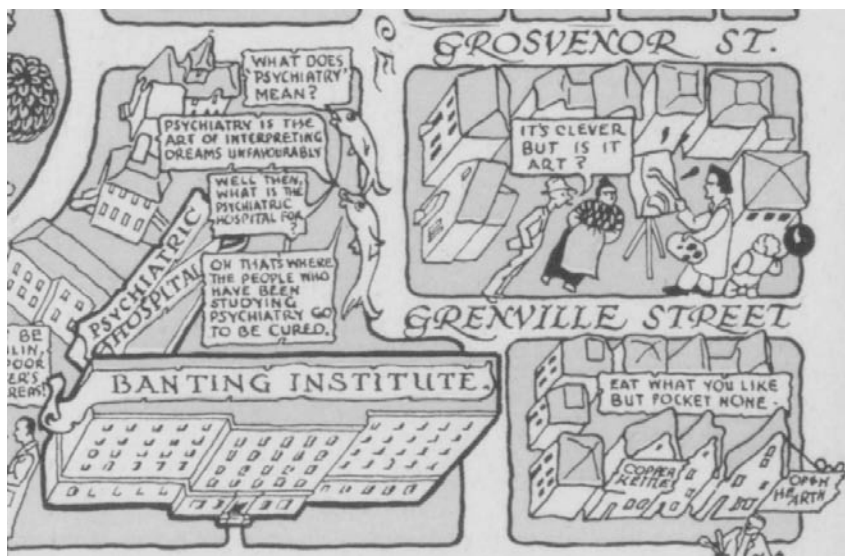 GROSVENOR ST.
WHAT DOES
'PSYCHIATRY'
MEAN?
PSYCHIATRY IS THE
ART OF INTERPRETING
DREAMS UNFAVOURABLY
WELL THEN,
WHAT IS THE
PSYCHIATRIC
HOSPITAL FOR
?
OH THAT'S WHERE
THE PEOPLE WHO
HAVE BEEN
STUDYING
PSYCHIATRY GO
TO BE CURED.
PSYCHIATRIC
HOSPITAL
IT'S CLEVER
BUT IS IT
ART?
GRENVILLE STREET
BE
LIN,
POOR
ER'S
REAS!
BANTING INSTITUTE.
EAT WHAT YOU LIKE
BUT POCKET NONE.
COPPER
KETTLE
OPEN
HEARTH